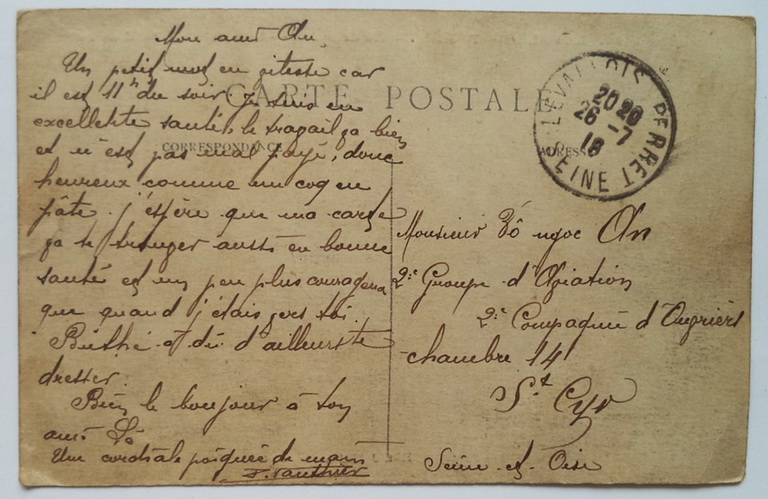 CARTE POSTALE
CORRESPONDANCE
ADRESSE
LEVALLOIS PERRET
20 20
26 - 7
18
SEINE
Mon ami An,
Un petit mot en vitesse car
il est 11h du soir, je suis en
excellente santé, le travail ça bien
et n'est pas mal payé, donc
heureux comme un coq en
pâte. j'espère que ma carte
ça te trouver aussi en bonne
santé et un peu plus courageux
que quand j'étais vers toi.
Berthe a dû d'ailleurs te
dresser.
Bien le bonjour à ton
ami Lê
Une cordiale poignée de main
Monsieur Võ ngoc An
2e Groupe d'Aviation
2e Compagnie d'Ouvriers
chambre 14
St Cyr
Seine et Oise